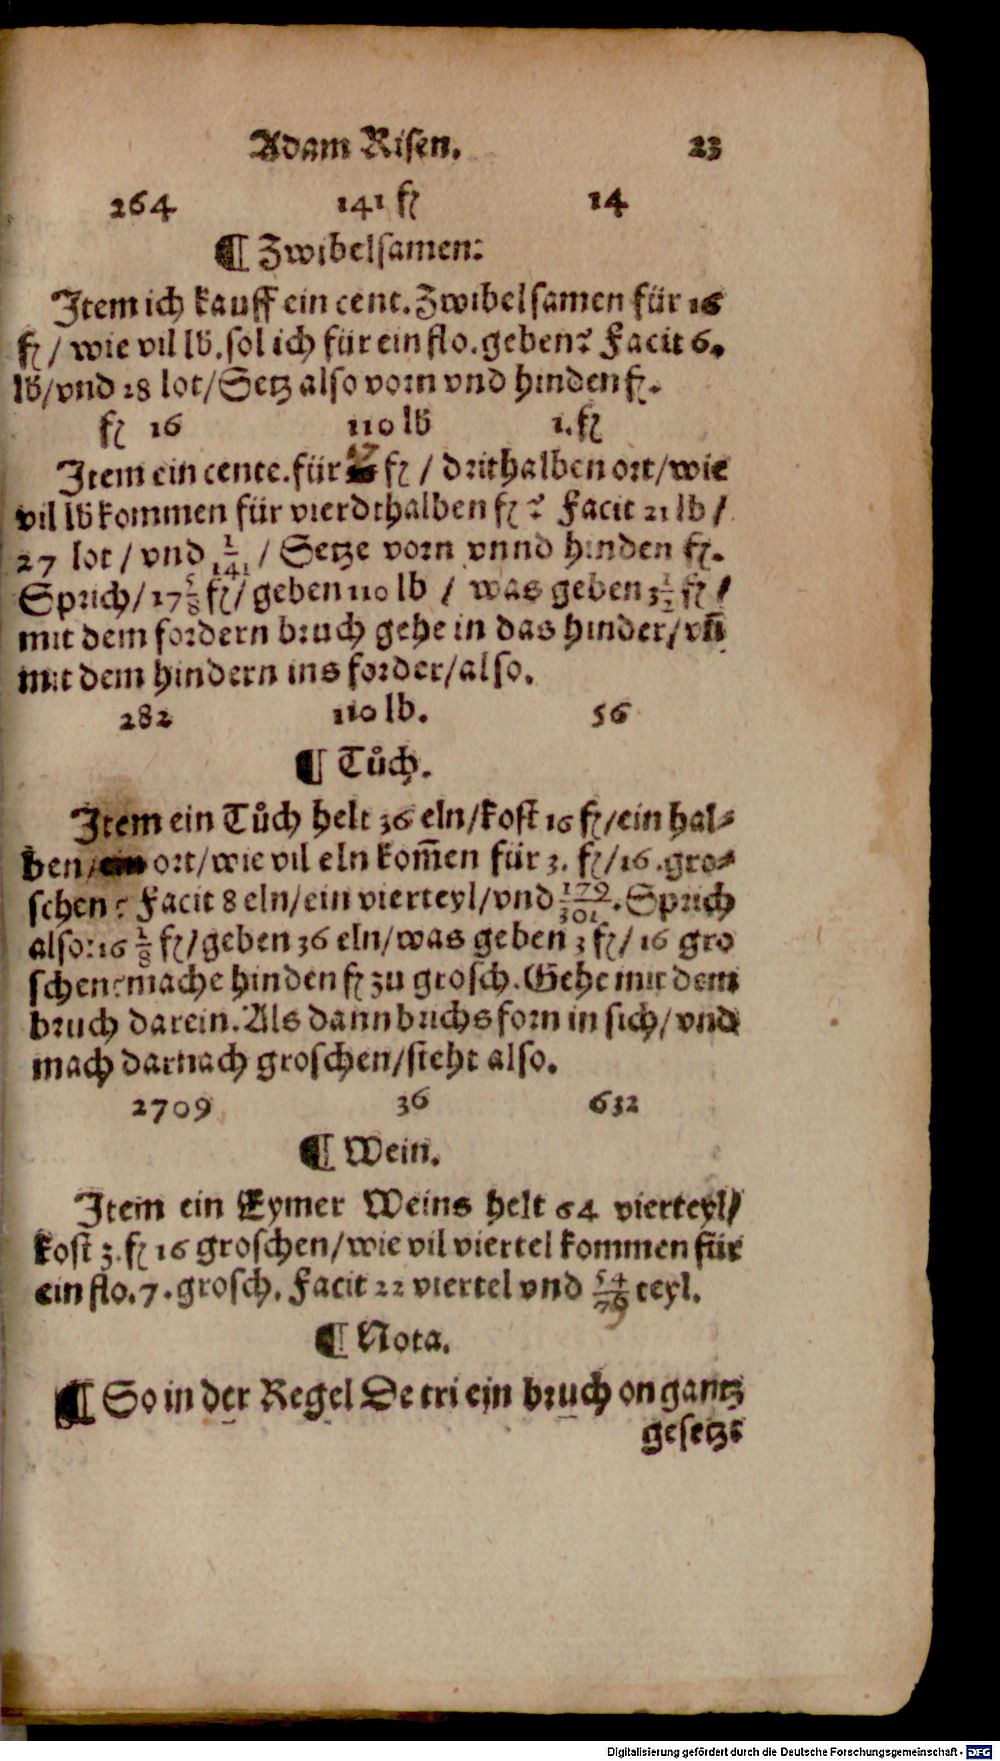 Adam Risen. 23
264 141 fl 14
¶ Zwibelsamen:
Item ich kauff ein cent. Zwibelsamen für 16
fl / wie vil lb. sol ich für ein flo. geben? Facit 6.
lb/vnd 28 lot/Setz also vorn vnd hinden fl.
fl 16 110 lb 1. fl
Item ein cente. für 17 fl / drithalben ort/wie
vil lb kommen für vierdthalben fl? Facit 21 lb /
27 lot / vnd 1/141 / Setze vorn vnnd hinden fl.
Sprich/ 17 5/8 fl/ geben 110 lb / was geben 3 1/2 fl /
mit dem fordern bruch gehe in das hinder/vn̄
mit dem hindern ins forder/also.
282 110 lb. 56
¶ Tůch.
Item ein Tůch helt 36 eln/kost 16 fl/ein hal⸗
ben/ein ort/wie vil eln kom̄en für 3. fl/16. gro⸗
schen? Facit 8 eln/ein vierteyl/vnd 179/301. Sprich
also: 16 1/8 fl/geben 36 eln/was geben 3 fl/ 16 gro
schen? mache hinden fl zu grosch. Gehe mit dem
bruch darein. Als dann brichs forn in sich/vnd
mach darnach groschen/steht also.
2709 36 632
¶ Wein.
Item ein Eymer Weins helt 64 vierteyl/
kost 3. fl 16 groschen/wie vil viertel kommen für
ein flo. 7. grosch. Facit 22 viertel vnd 54/79 teyl.
¶ Nota.
¶ So in der Regel De tri ein bruch on gantz
gesetzt
Digitalisierung gefördert durch die Deutsche Forschungsgemeinschaft - DFG